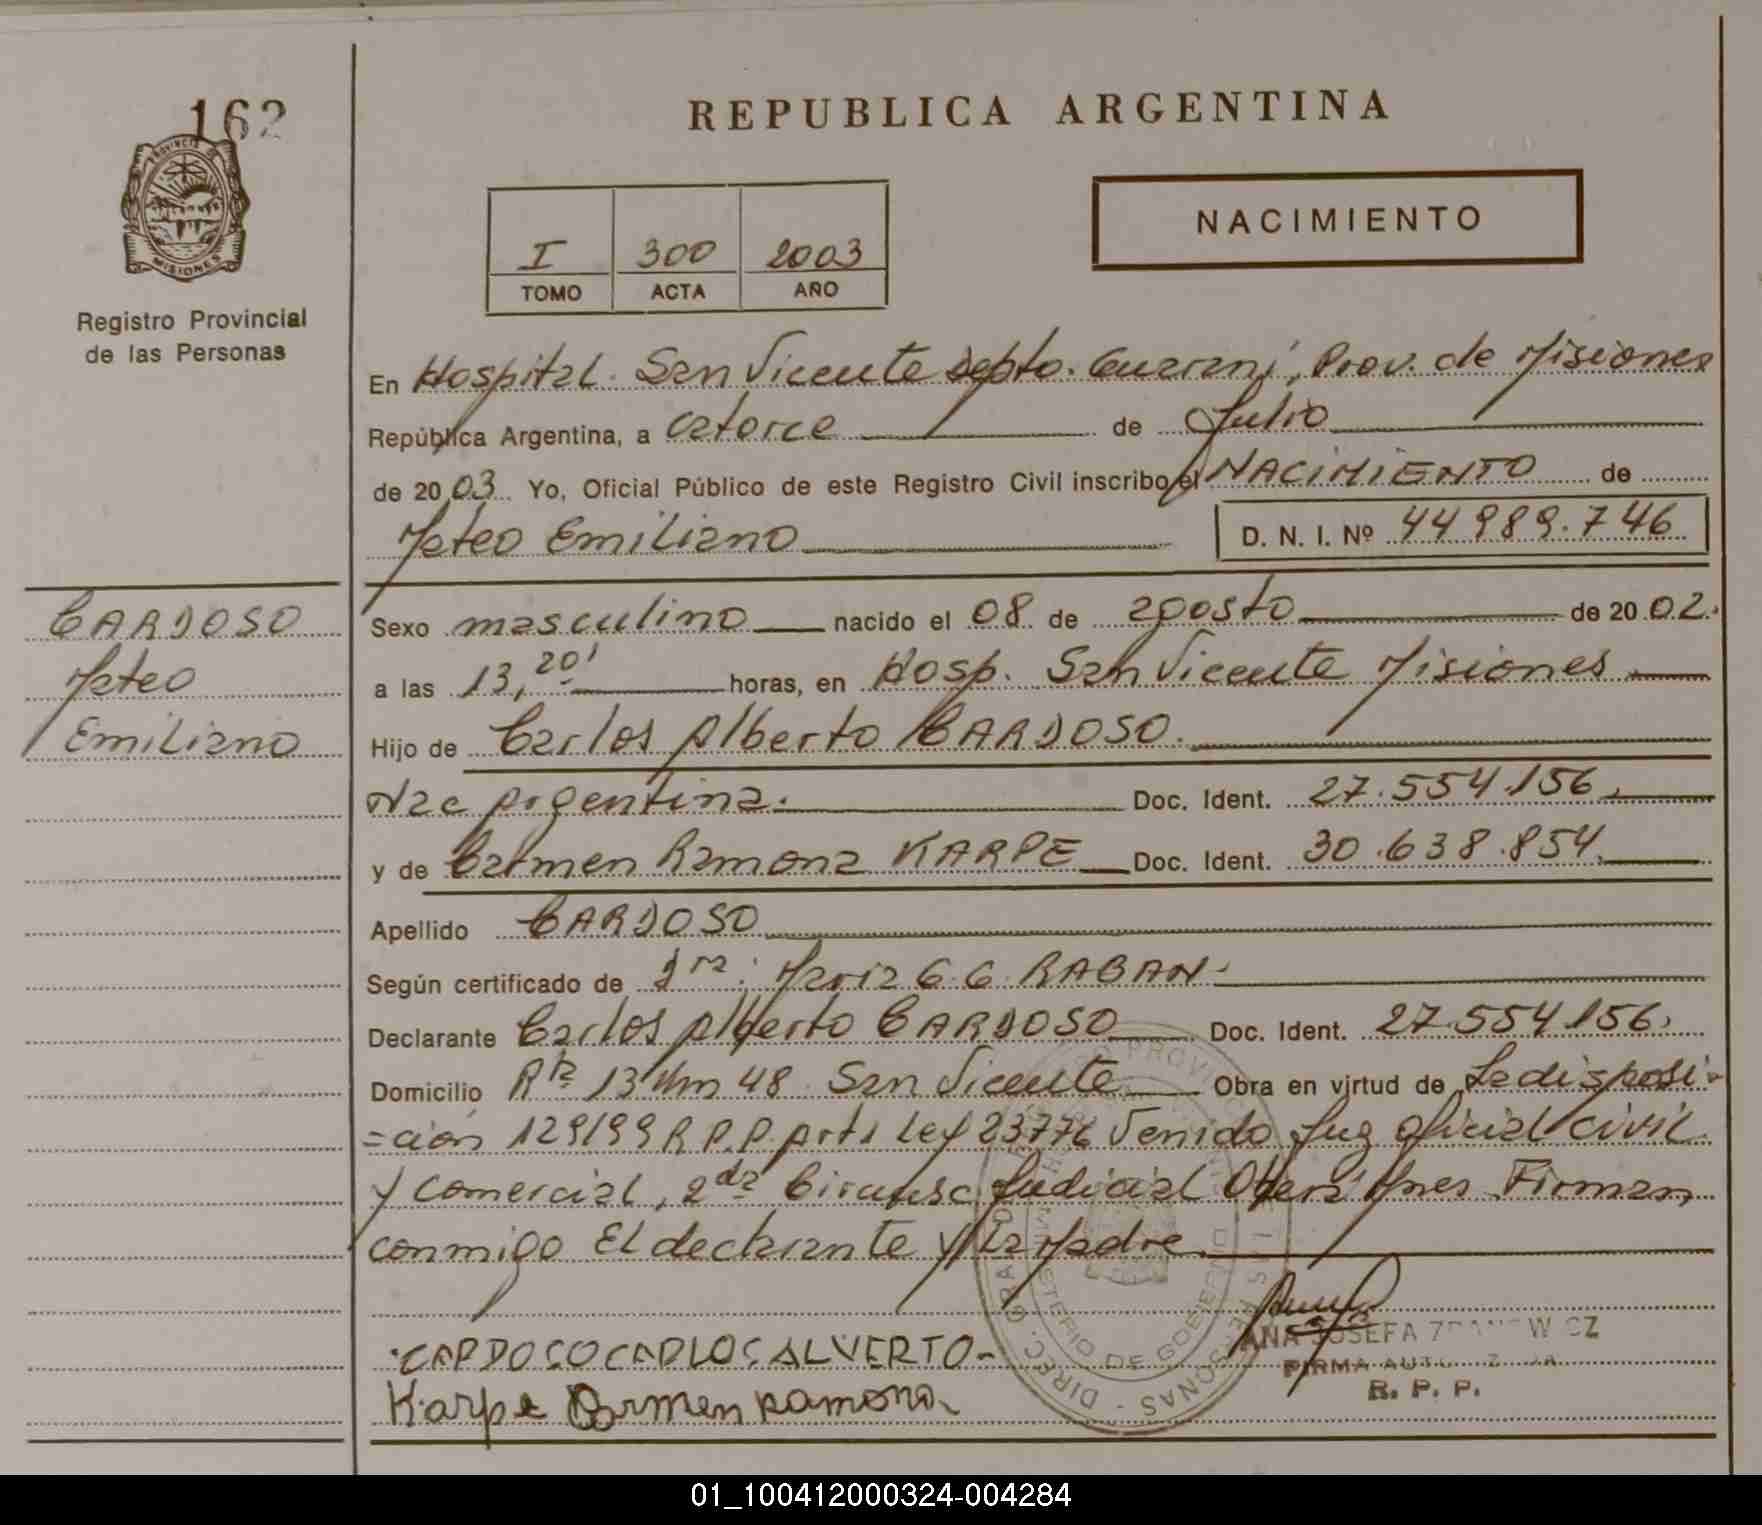 162
REPUBLICA ARGENTINA
PROVINCIA DE
MISIONES
Registro Provincial
de las Personas
I 300 2003
TOMO ACTA AÑO
NACIMIENTO
En Hospital. San Vicente Depto. Guaraní, Prov. de Misiones
República Argentina, a catorce de Julio
de 20 03 Yo, Oficial Público de este Registro Civil inscribo el NACIMIENTO de
Mateo Emiliano D. N. I. Nº 44 989.746
CARDOSO
Mateo
Emiliano
Sexo masculino nacido el 08 de agosto de 20 02.
a las 13,20' horas, en Hosp. San Vicente Misiones
Hijo de Carlos Alberto CARDOSO.
Nac Argentina. Doc. Ident. 27.554.156.
y de Carmen Ramona KARPE Doc. Ident. 30.638.854.
Apellido CARDOSO
Según certificado de Dra: Maria G. G. RABAN.
Declarante Carlos Alberto CARDOSO Doc. Ident. 27.554.156.
Domicilio Rta 13 Km 48 San Vicente Obra en virtud de La disposi-
=ción 129/99 R.P.P. art1 Ley 23776 Venido Juz oficial civil
y Comercial, 2da Circunsc Judicial Oberá Mnes Firman
conmigo El declarante y La Madre.
CARDOSO CARLOS ALVERTO-
Karpe Carmen ramona
ANA JOSEFA
FIRMA
R. P. P.
01_100412000324-004284